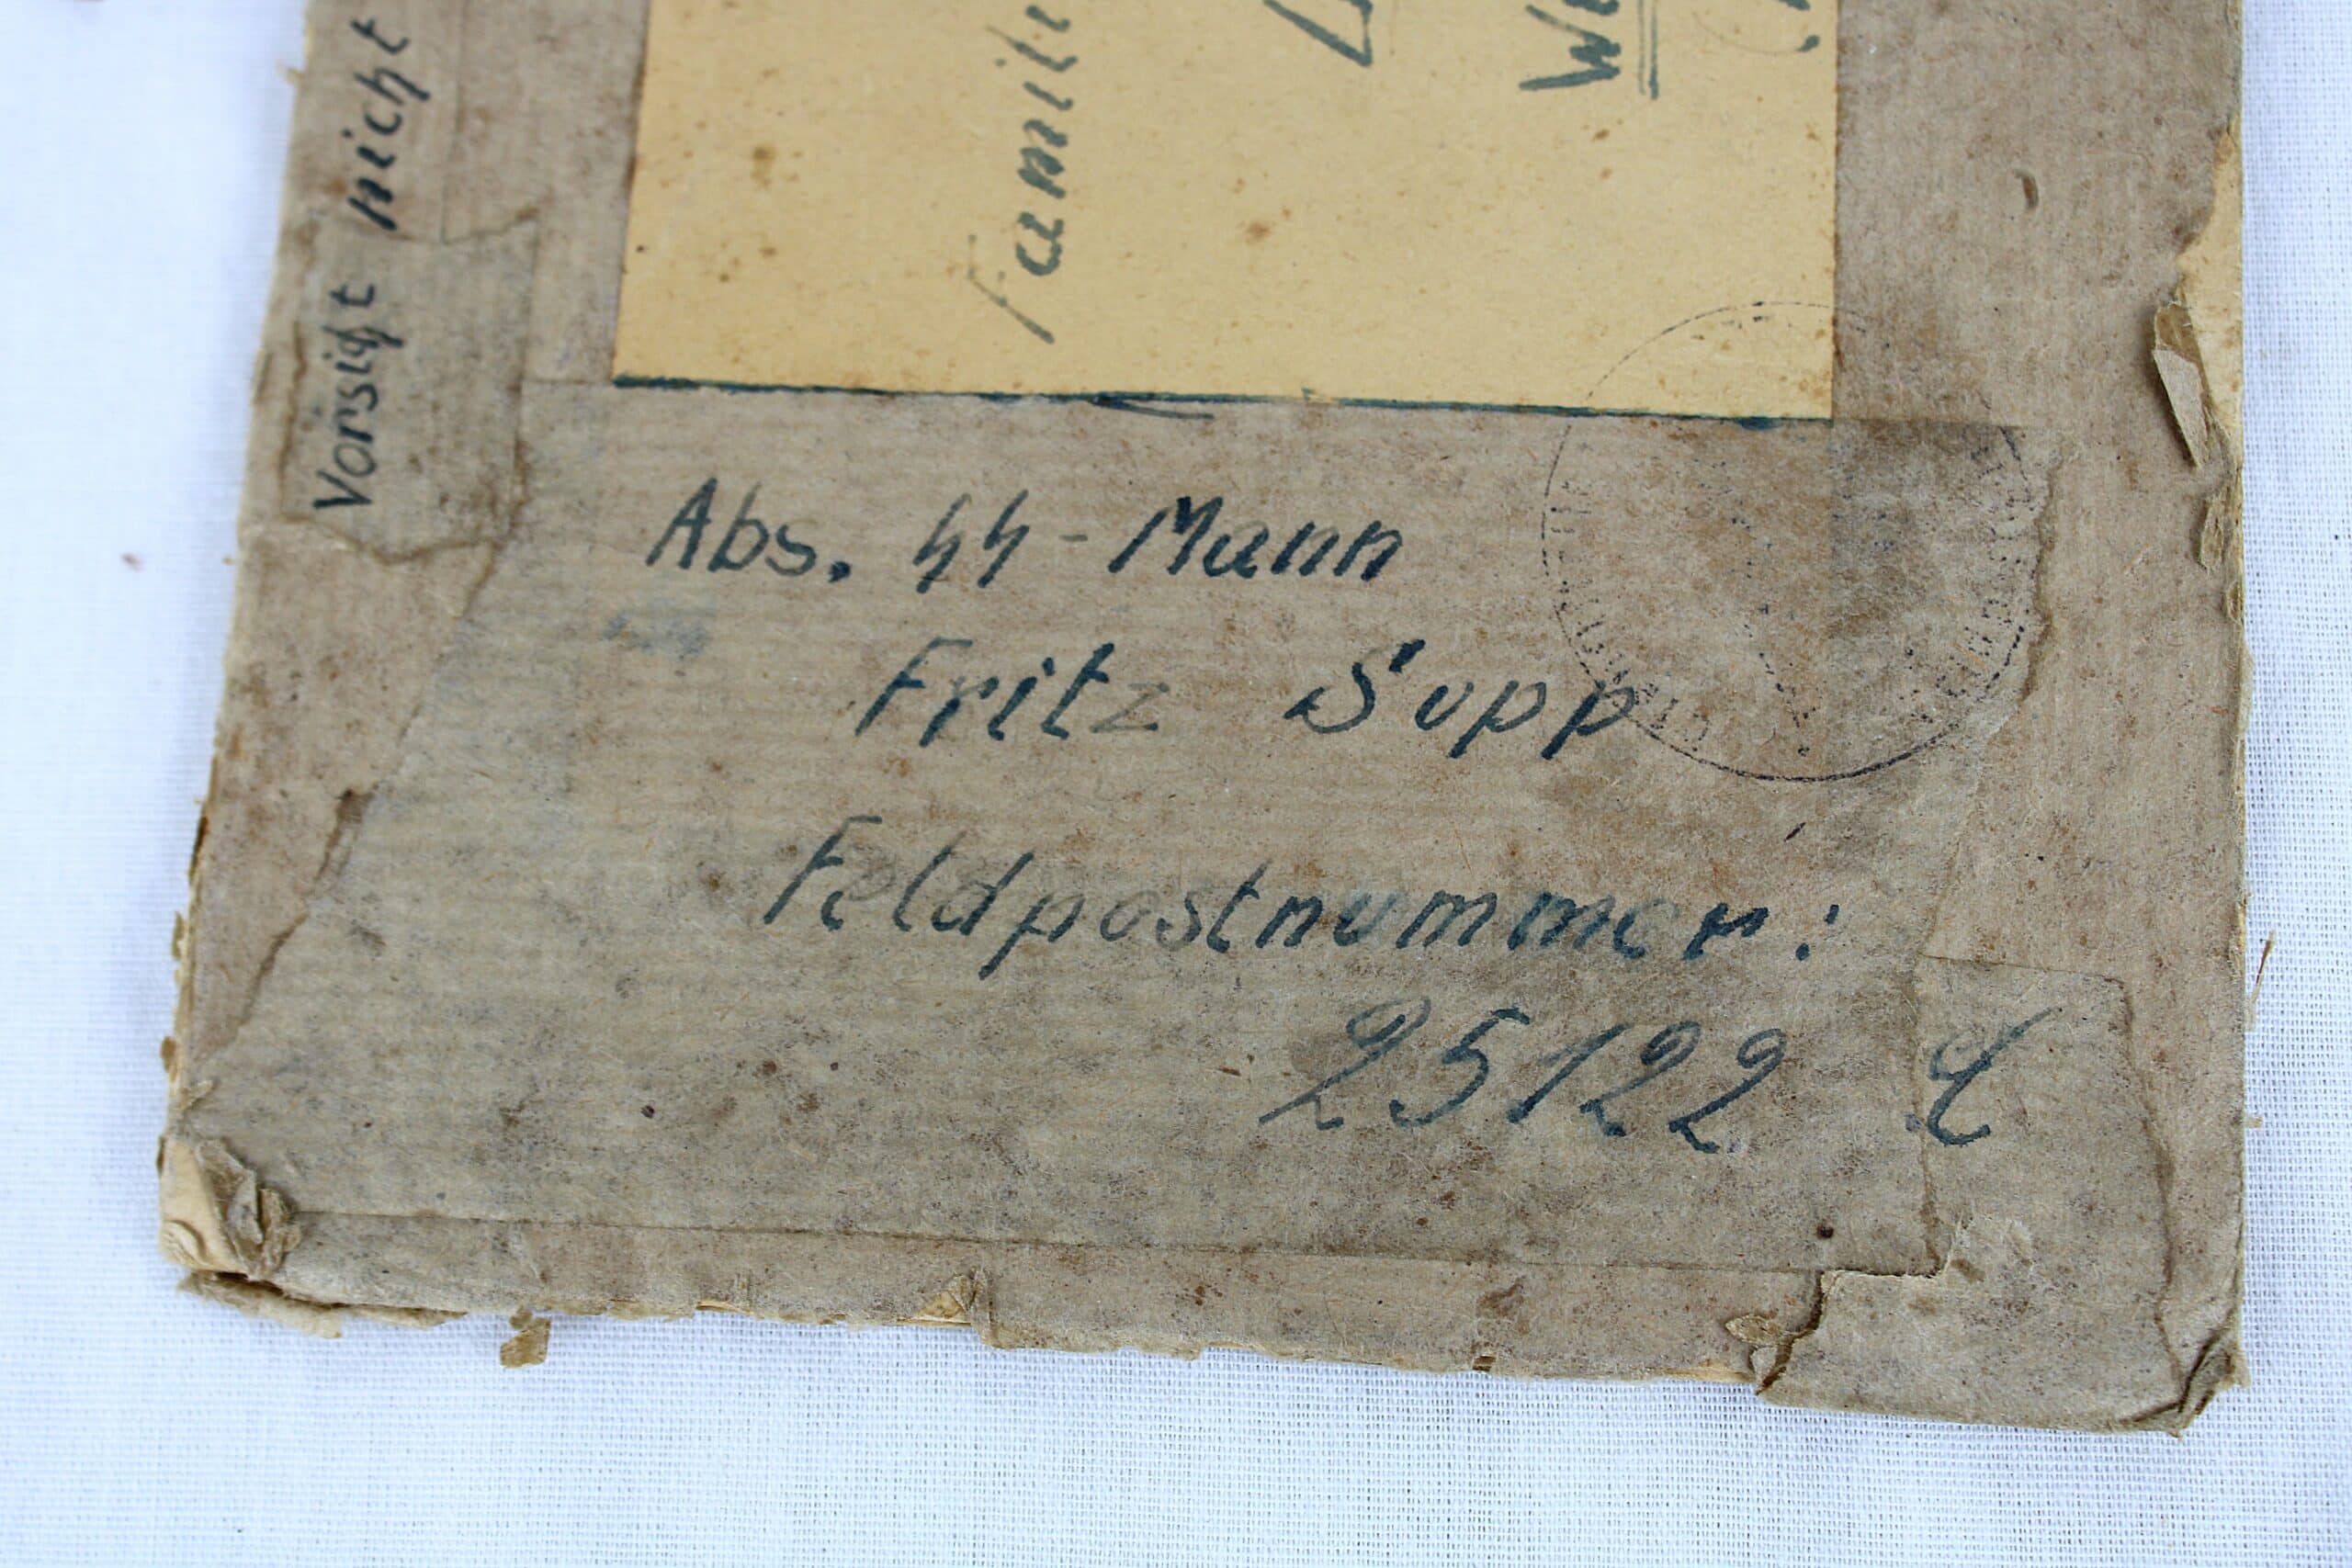 Vorsicht nicht
Famili
We
Abs. SS - Mann
Fritz Supp
Feldpostnummer:
25122 C